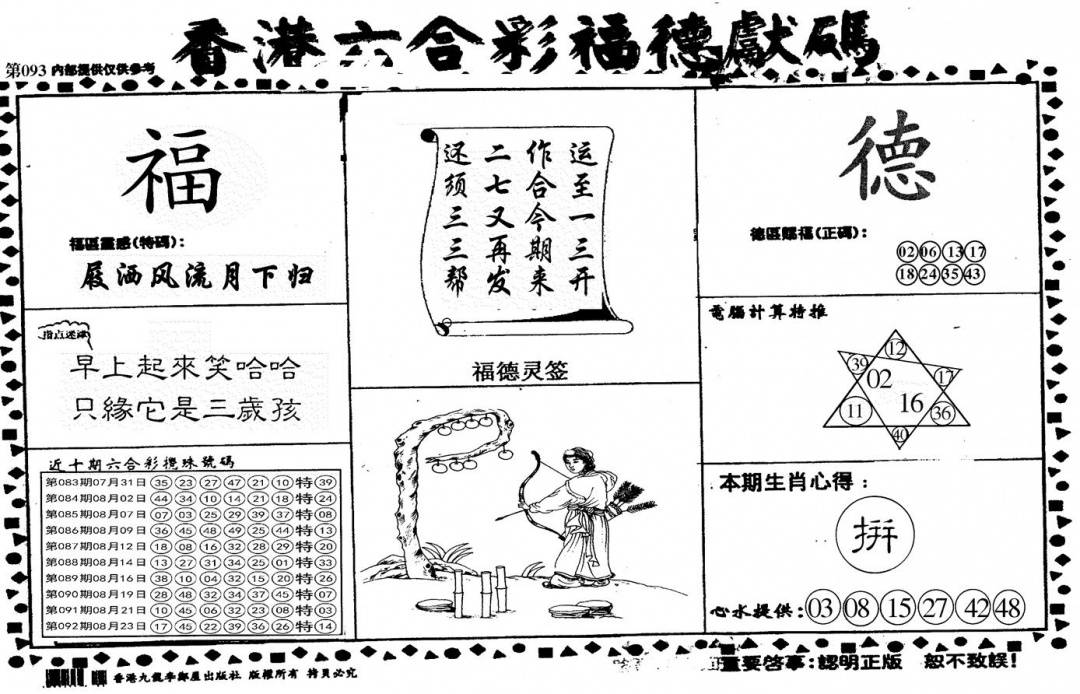 香港六合彩福德獻碼
第093 内部提供仅供参考
福
福區靈感(特碼):
屐洒风流月下归
指点迷津
早上起來笑哈哈
只緣它是三歲孩
近十期六合彩攪珠號碼
第083期07月31日 35 23 27 47 21 10 特 39
第084期08月02日 44 34 10 14 21 18 特 24
第085期08月07日 07 03 25 29 39 37 特 08
第086期08月09日 36 45 48 49 25 44 特 13
第087期08月12日 18 08 16 32 28 29 特 20
第088期08月14日 13 27 31 34 25 01 特 33
第089期08月16日 38 10 04 32 15 20 特 26
第090期08月19日 28 48 32 34 37 45 特 07
第091期08月21日 10 45 06 32 23 08 特 03
第092期08月23日 17 45 22 39 36 26 特 14
运至一三开
作合今期来
二七又再发
还须三三帮
福德灵签
德
德區賜福(正碼):
02 06 13 17
18 24 35 43
電腦計算特推
12
39 02 17
11 16 36
40
本期生肖心得:
拼
心水提供: 03 08 15 27 42 48
香港九龍李鄭屋出版社 版權所有 拷貝必究
重要啓事:認明正版 恕不致誤!